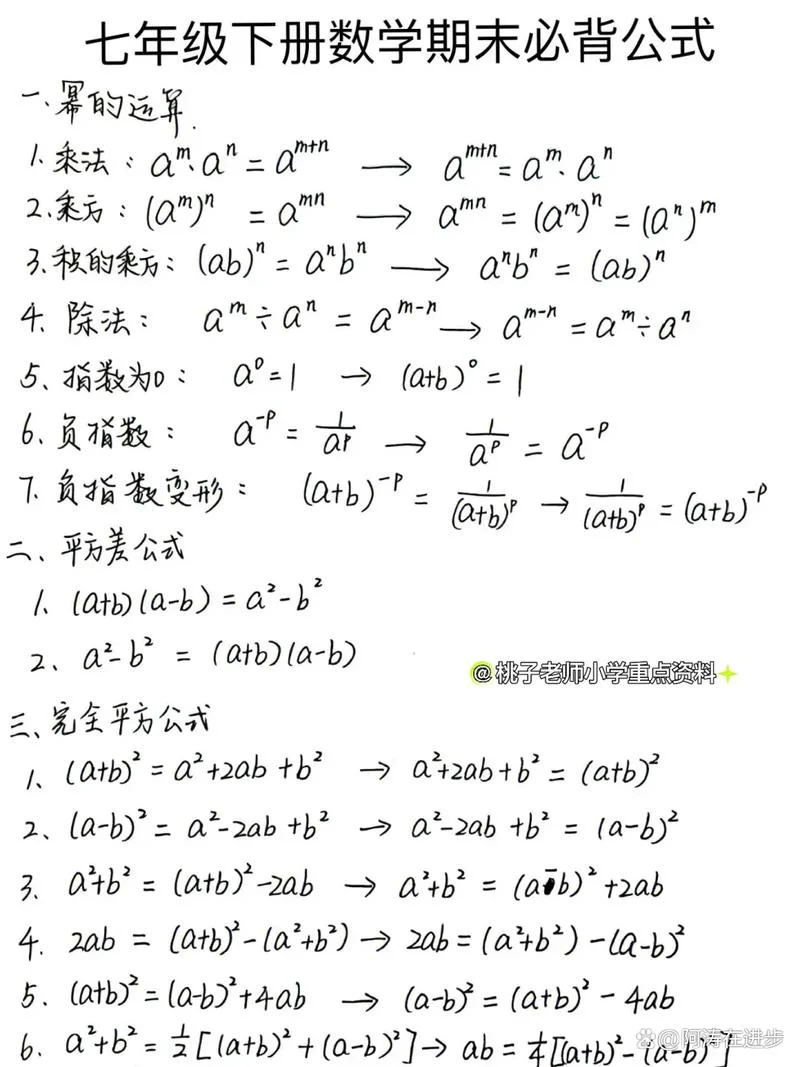 七年级下册数学期末必背公式
一、幂的运算.
1. 乘法：aᵐ·aⁿ = aᵐ⁺ⁿ → aᵐ⁺ⁿ = aᵐ·aⁿ
2. 乘方：(aᵐ)ⁿ = aᵐⁿ → aᵐⁿ = (aᵐ)ⁿ = (aⁿ)ᵐ
3. 积的乘方：(ab)ⁿ = aⁿbⁿ → aⁿbⁿ = (ab)ⁿ
4. 除法：aᵐ÷aⁿ = aᵐ⁻ⁿ → aᵐ⁻ⁿ = aᵐ÷aⁿ
5、指数为0：a⁰=1 → (a+b)⁰=1
6、负指数：a⁻ᵖ = 1/aᵖ → 1/aᵖ = a⁻ᵖ
7. 负指数变形：(a+b)⁻ᵖ = 1/(a+b)ᵖ → 1/(a+b)ᵖ = (a+b)⁻ᵖ
二、平方差公式
1. (a+b)(a-b) = a²-b²
2、a²-b² = (a+b)(a-b)
@桃子老师小学重点资料
三、完全平方公式
1、(a+b)² = a²+2ab+b² → a²+2ab+b² = (a+b)²
2、(a-b)² = a²-2ab+b² → a²-2ab+b² = (a-b)²
3. a²+b² = (a+b)²-2ab → a²+b² = (a-b)²+2ab
4. 2ab = (a+b)²-(a²+b²) → 2ab = (a²+b²)-(a-b)²
5. (a+b)² = (a-b)²+4ab → (a-b)² = (a+b)²-4ab
6. a²+b² = 1/2[(a+b)²+(a-b)²] → ab = 1/4[(a+b)²-(a-b)²]
@阿涛在进步